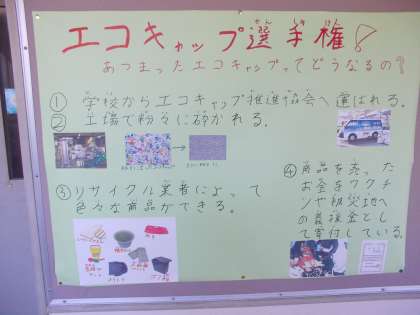 エコキャップ選手権!
あつまったエコキャップってどうなるの?
① 学校からエコキャップ推進協会へ運ばれる。
② 工場で粉々に砕かれる。
→
③ リサイクル業者によって
色々な商品ができる。
④ 商品を売った
お金をワクチ
ンや被災地へ
の義援金とし
て寄付している。